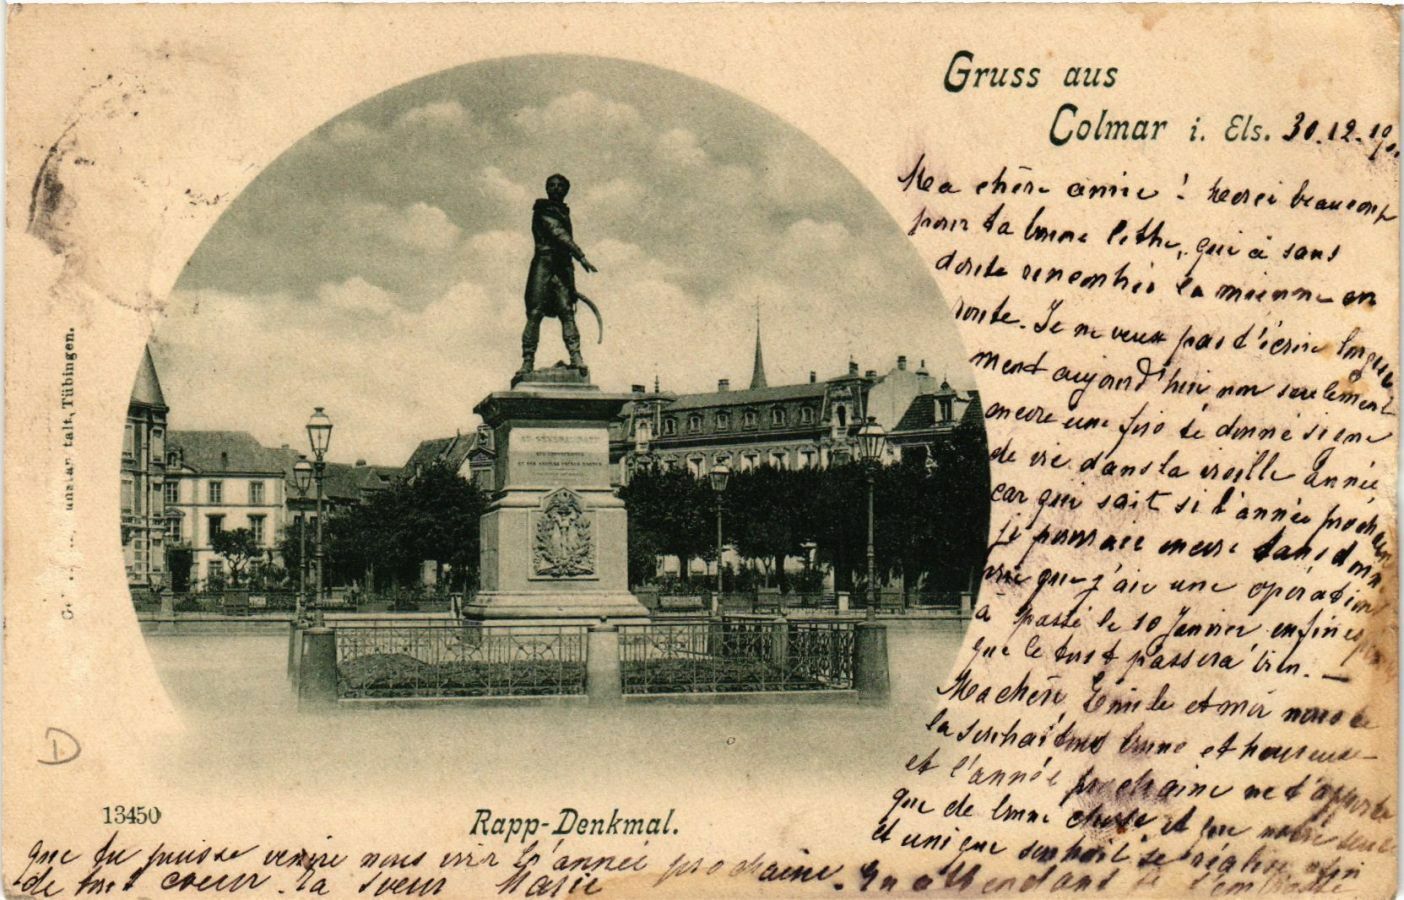 Gruss aus
Colmar i. Els. 30.12.19
Ma chère amie ! Merci beaucoup
pour ta bonne lettre, qui a sans
doute rencontré la mienne en
route. Je ne veux pas t'écrire longue
ment aujourd'hui non seulement
encore une fois te donné signe
de vie dans la vieille année
car qui sait si l'année prochaine
je pourrai encore
que j'aie une opération
à passé le 10 Janvier enfin
que le tout passera bien. —
Ma chère, Emile et moi nous te
la souhaitons bonne et heureuse
et l'année prochaine ne t'apporte
que de bonne chose et que notre seule
et unique souhait se réalise
que tu puisse venire nous voir l'année prochaine. En attendant je t'embrasse
de tout coeur. Ta soeur Marie
AU GÉNÉRAL RAPP
Tübingen.
D
13450
Rapp-Denkmal.